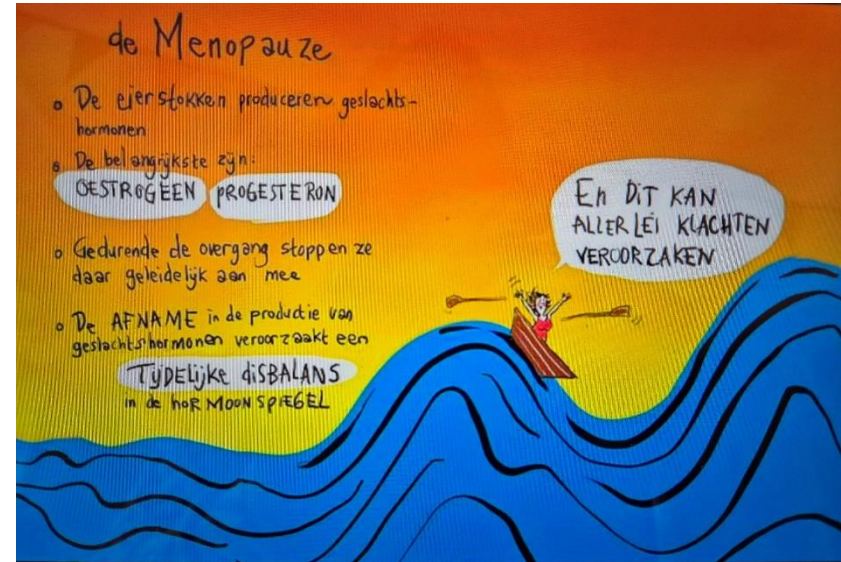 de Menopauze
o De eierstokken produceren geslachts-
hormonen
o De belangrijkste zijn:
OESTROGEEN PROGESTERON
o Gedurende de overgang stoppen ze
daar geleidelijk aan mee
o De AFNAME in de productie van
geslachtshormonen veroorzaakt een
TIJDELIJKE DISBALANS
in de HORMOONSPIEGEL
En DIT KAN
ALLERLEI KLACHTEN
VEROORZAKEN